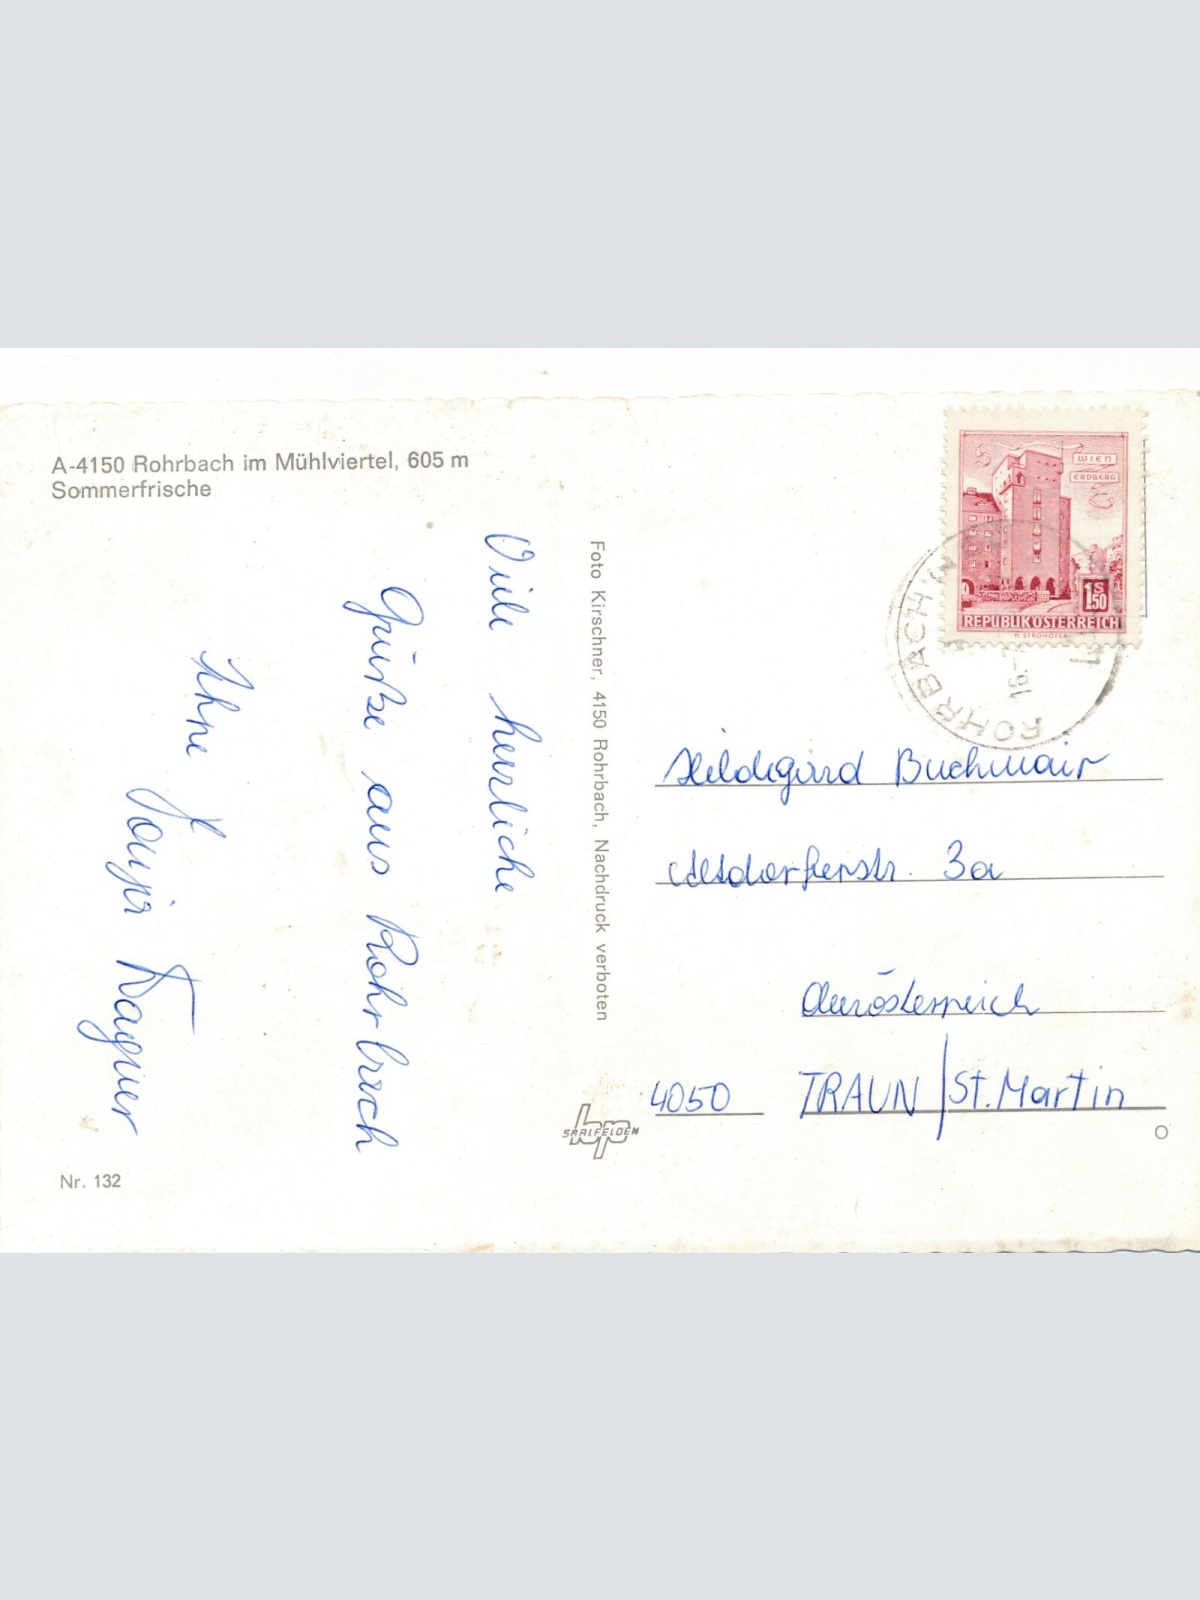 A-4150 Rohrbach im Mühlviertel, 605 m
Sommerfrische
Viele herzliche
Grüße aus Rohrbach
Ihre
Wagner
Nr. 132
Foto Kirschner, 4150 Rohrbach, Nachdruck verboten
SAALFELDEN
WIEN
ERDBERG
1S
1,50
REPUBLIK ÖSTERREICH
H. STROHOFER
ROHRBACH IN
16.-
Hildegard Buchmair
3a
Oberösterreich
4050 TRAUN/St. Martin